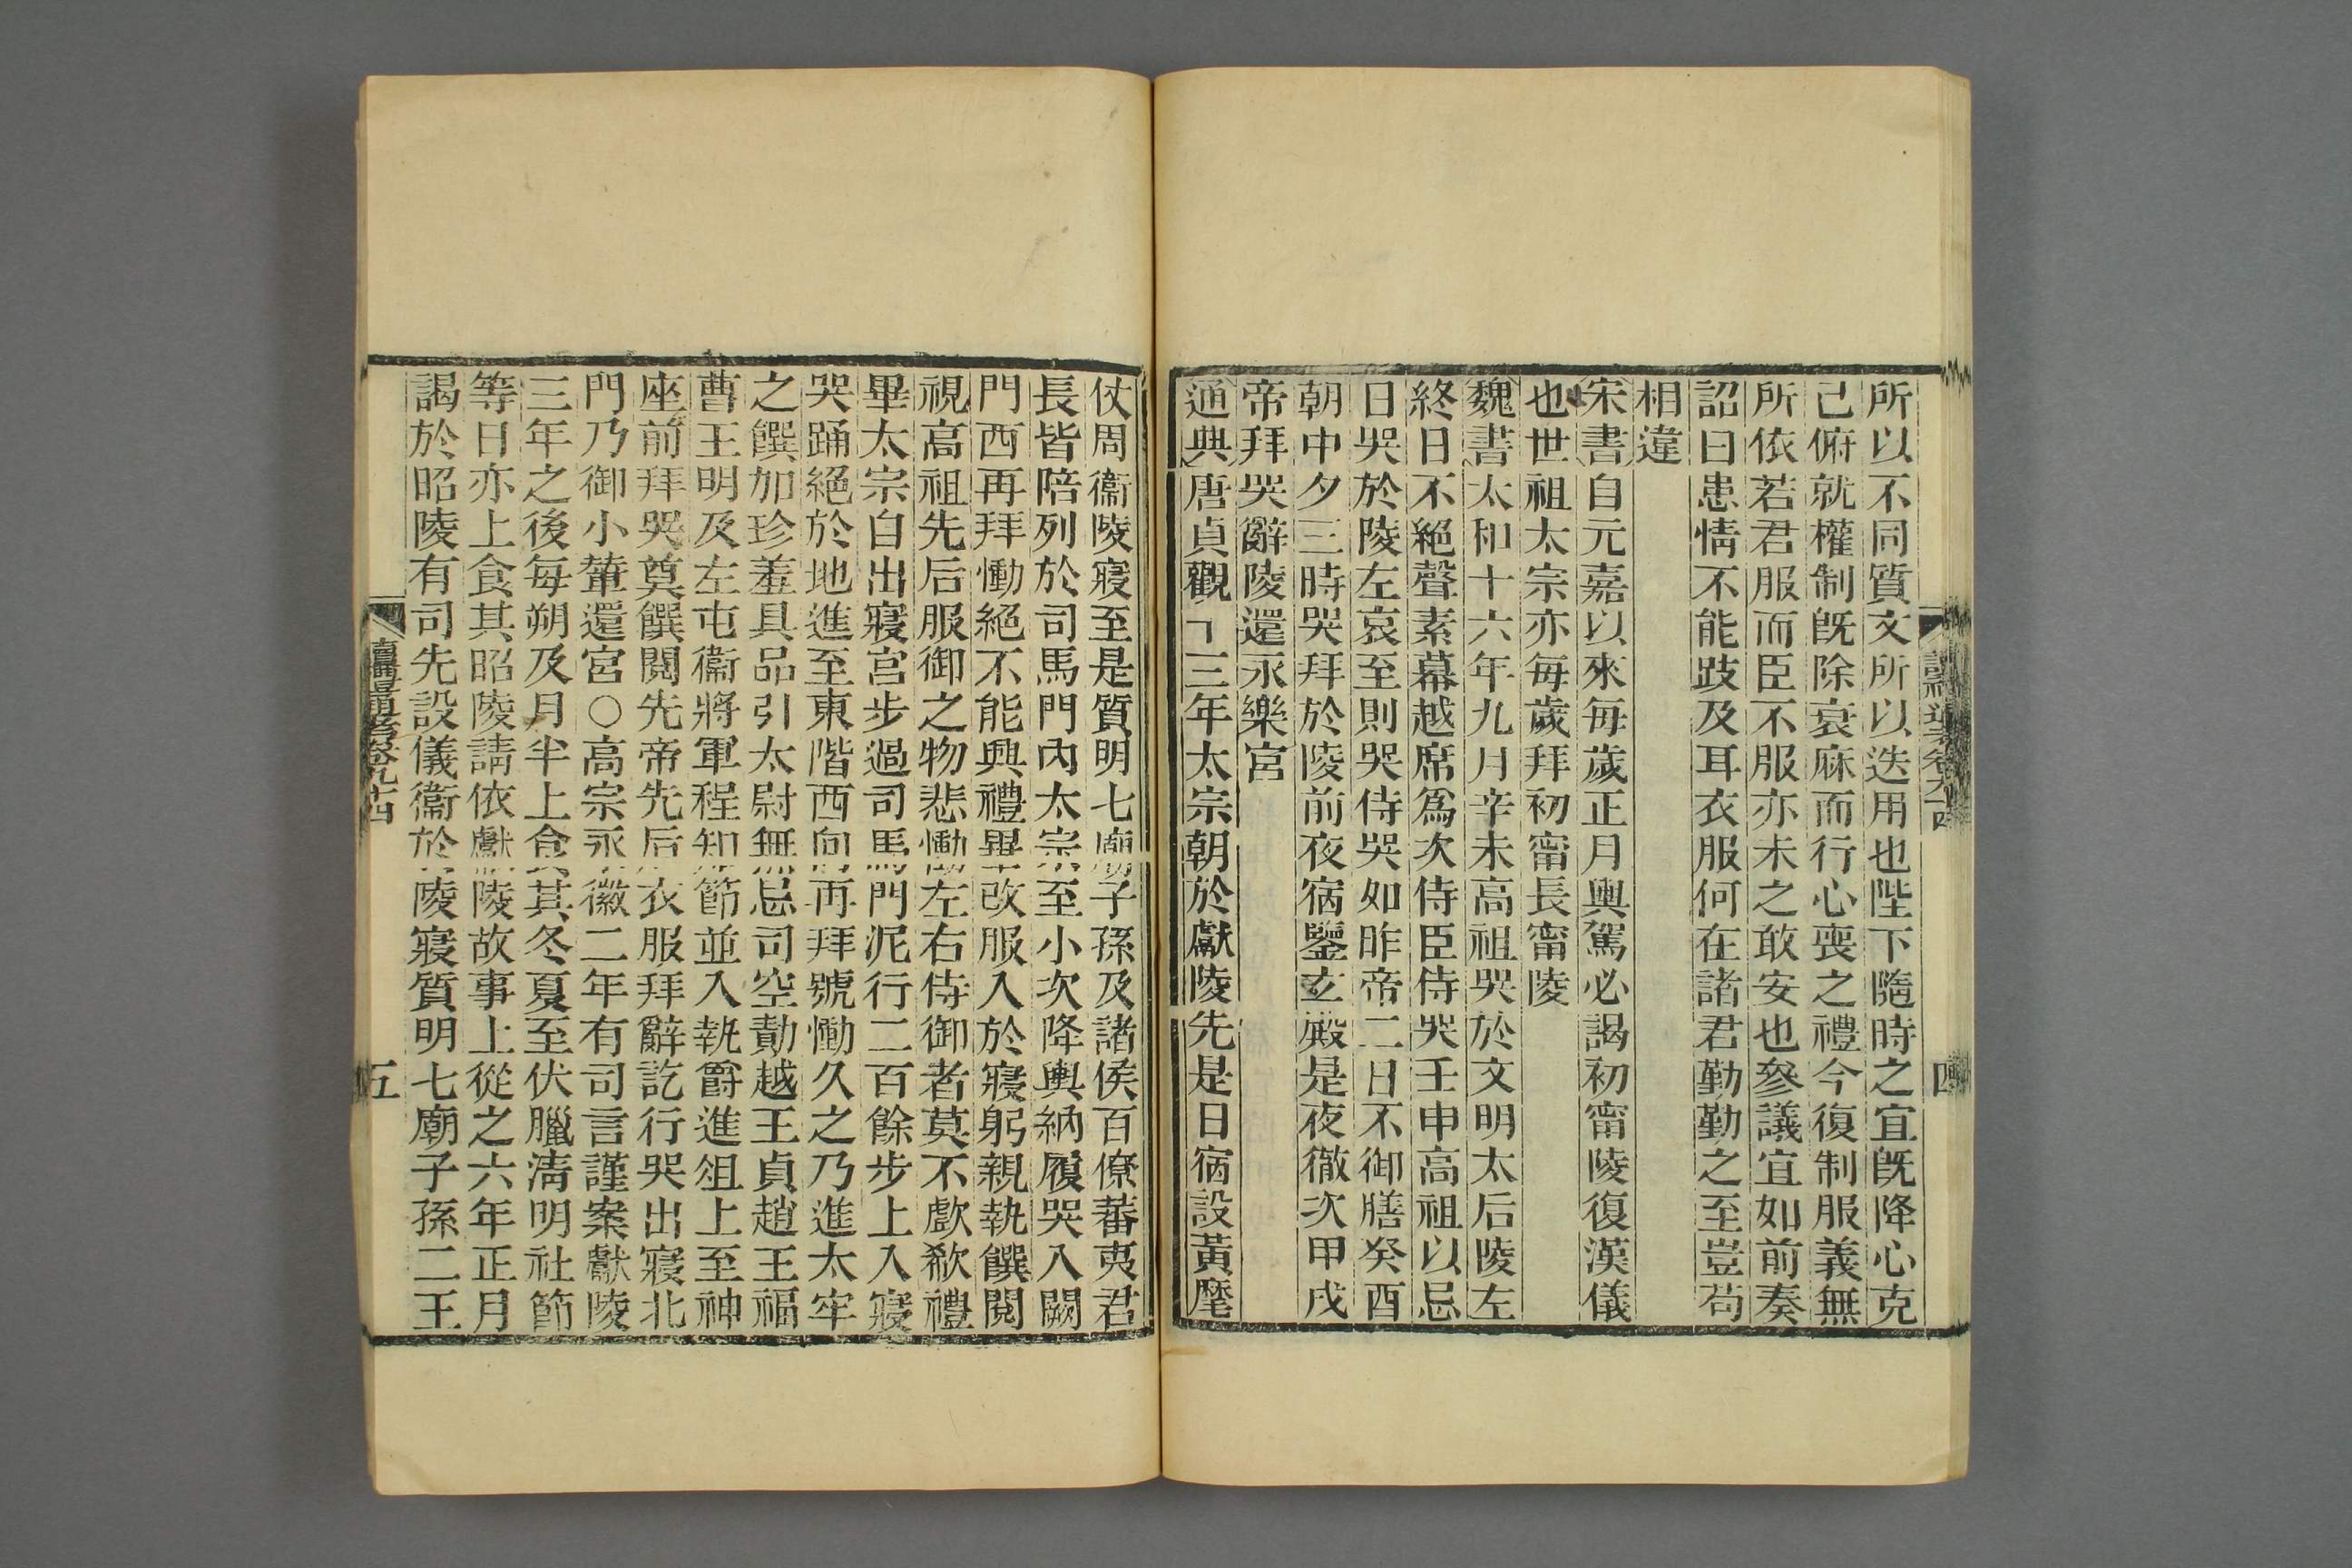 所以不同質文所以迭用也陛下隨時之宜既降心克
己俯就權制既除衰麻而行心喪之禮今復制服義無
所依若君服而臣不服亦未之敢安也參議宜如前奏
詔曰患情不能跂及耳衣服何在諸君勤勤之至豈苟
相違
宋書自元嘉以來每歲正月輿駕必謁初甯陵復漢儀
也世祖太宗亦每歲拜初甯長甯陵
魏書太和十六年九月辛未高祖哭於文明太后陵左
終日不絕聲素幕越席為次侍臣侍哭壬申高祖以忌
日哭於陵左哀至則哭侍哭如昨帝二日不御膳癸酉
朝中夕三時哭拜於陵前夜宿鑒玄殿是夜徹次甲戌
帝拜哭辭陵還永樂宮
通典唐貞觀十三年太宗朝於獻陵先是日宿設黃麾
仗周衞陵寢至是質明七廟子孫及諸侯百僚蕃夷君
長皆陪列於司馬門內太宗至小次降輿納履哭入闕
門西再拜慟絕不能興禮畢改服入於寢躬親執饌閱
視高祖先后服御之物悲慟左右侍御者莫不歔欷禮
畢太宗自出寢宮步過司馬門泥行二百餘步上入寢
哭踊絕於地進至東階西向再拜號慟久之乃進太牢
之饌加珍羞具品引太尉無忌司空勣越王貞趙王福
曹王明及左屯衞將軍程知節並入執爵進俎上至神
座前拜哭奠饌閱先帝先后衣服拜辭訖行哭出寢北
門乃御小輦還宮○高宗永徽二年有司言謹案獻陵
三年之後每朔及月半上食其冬夏至伏臘清明社節
等日亦上食其昭陵請依獻陵故事上從之六年正月
謁於昭陵有司先設儀衞於陵寢質明七廟子孫二王
讀禮通考卷九十四
五